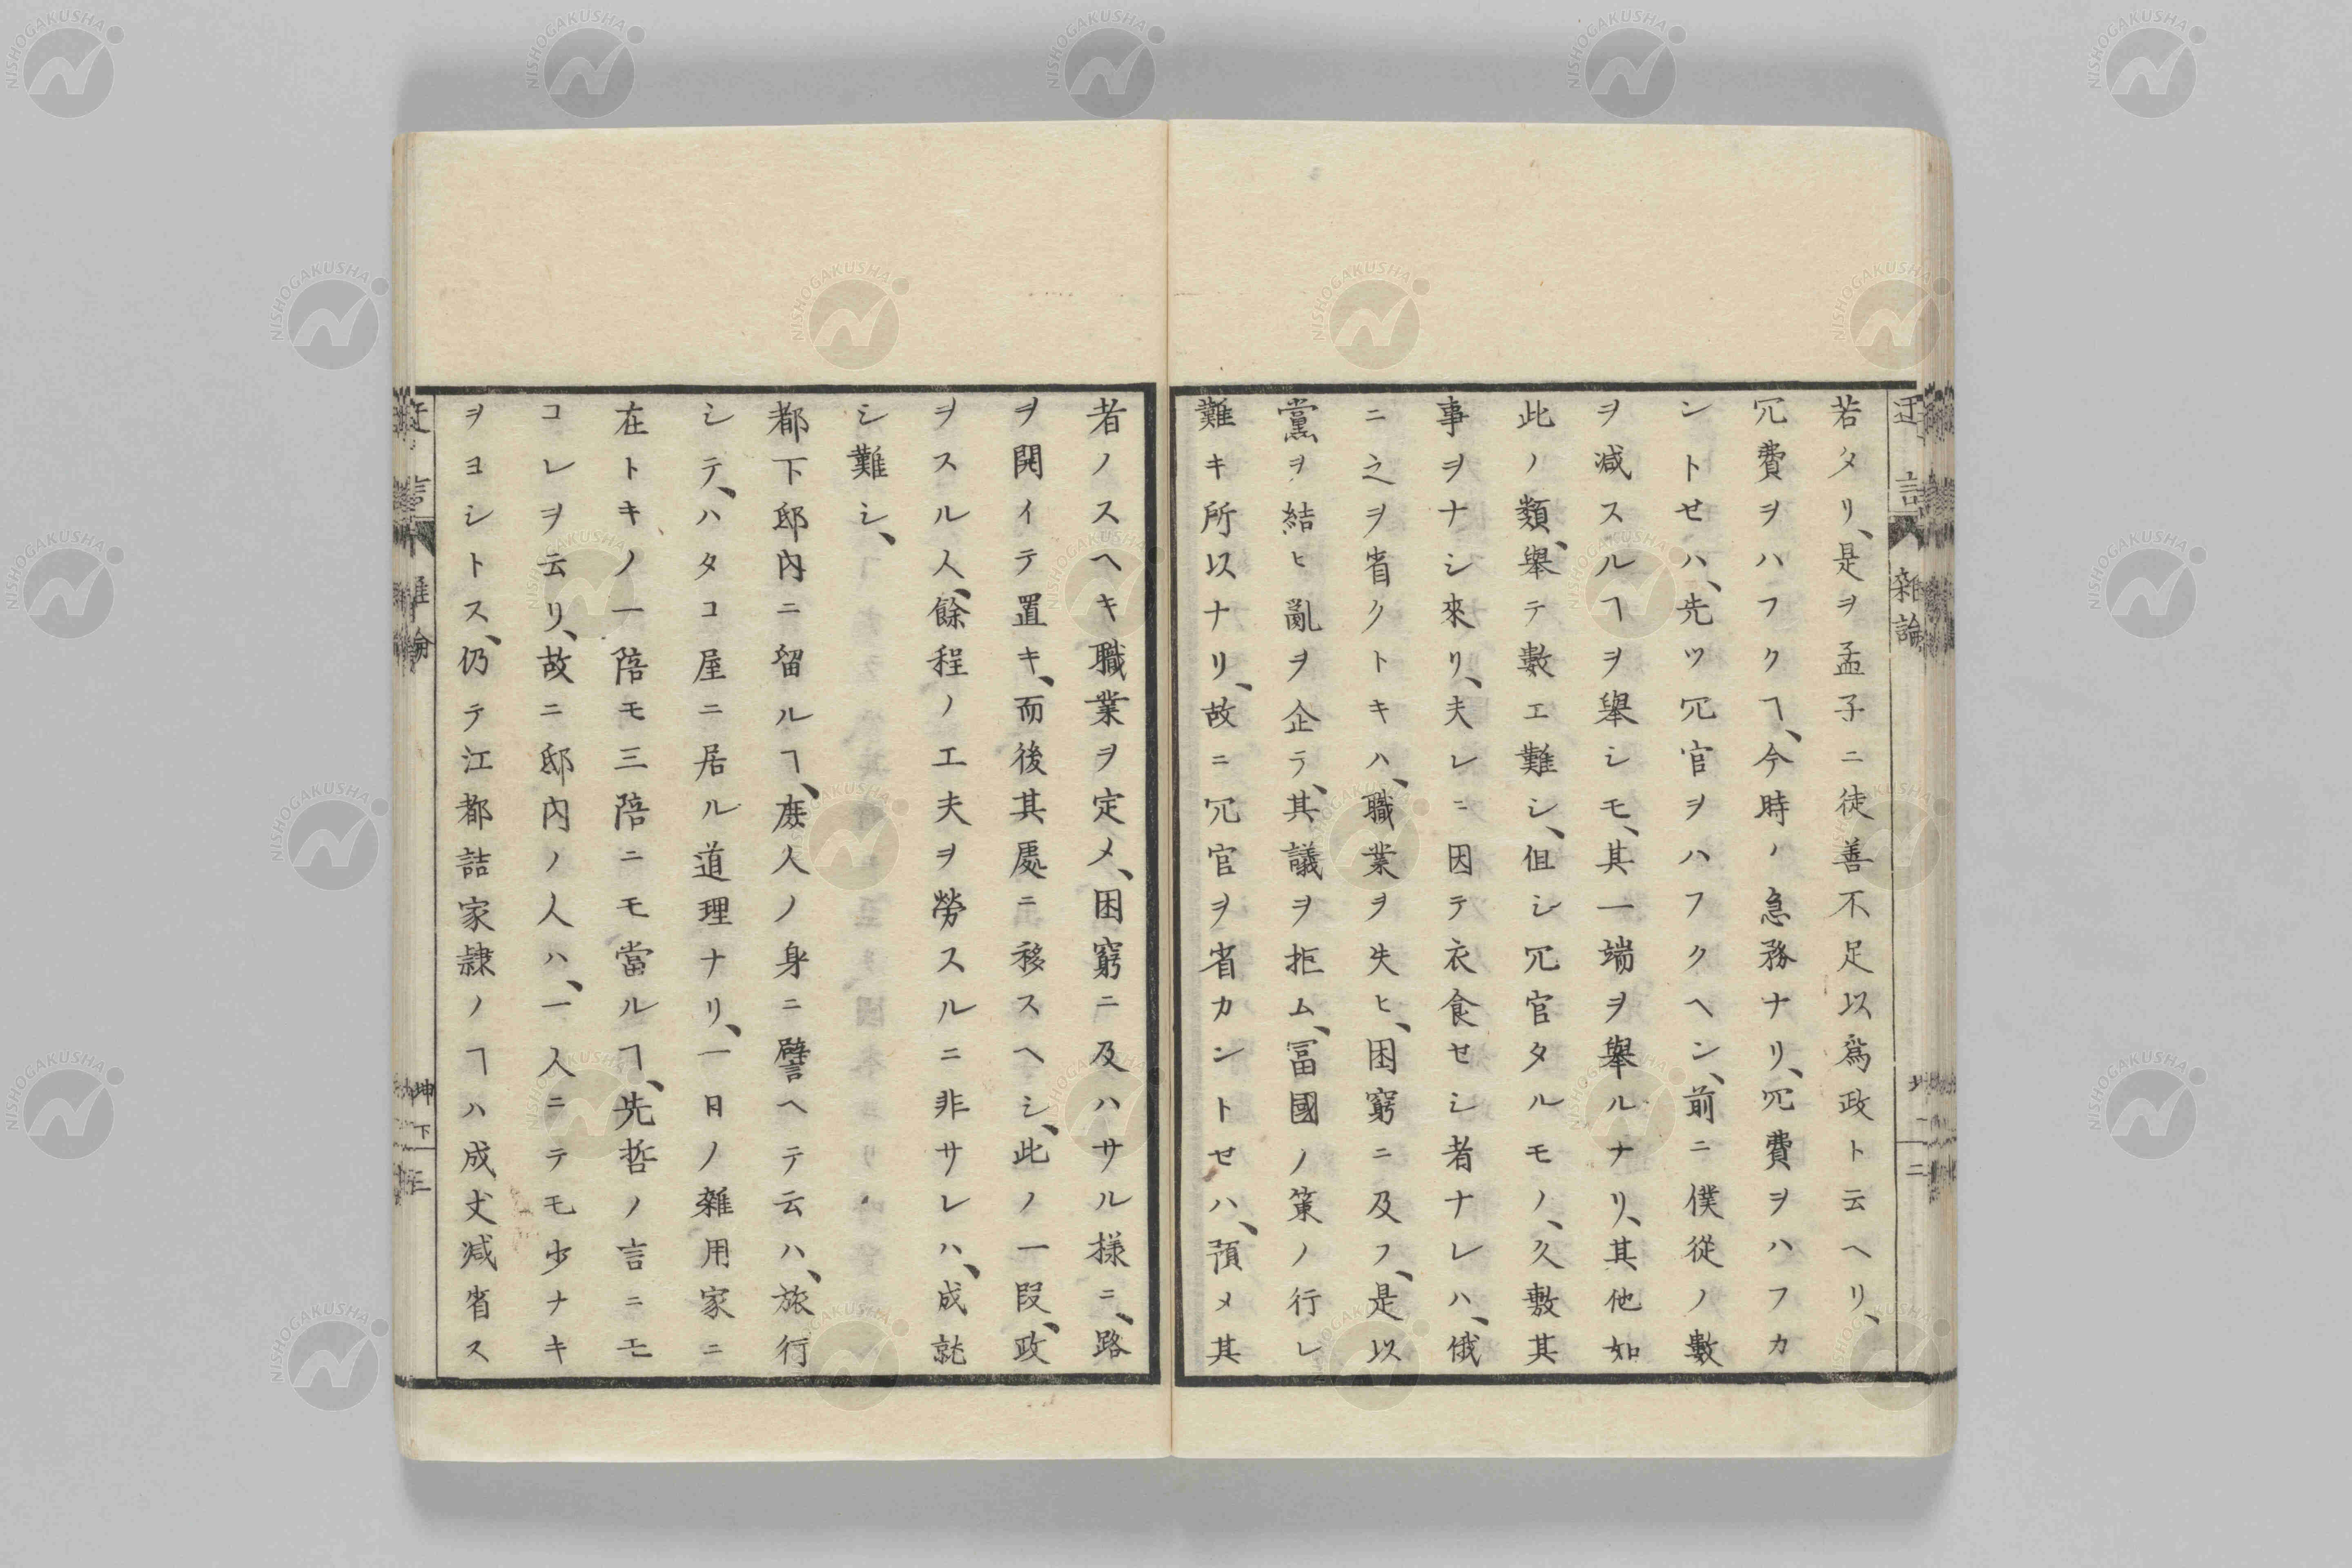 迂言
雜論
二
若タリ、是ヲ孟子ニ徒善不足以爲政ト云ヘリ、
冗費ヲハフクヿ、今時ノ急務ナリ、冗費ヲハフカ
ントセハ、先ツ冗官ヲハフクヘン、前ニ僕從ノ數
ヲ减スルヿヲ舉シモ、其一端ヲ舉ルナリ、其他如
此ノ類、舉テ數エ難シ、但シ冗官タルモノ、久敷其
事ヲナシ來リ、夫レニ因テ衣食セシ者ナレハ、俄
ニ之ヲ省クトキハ、職業ヲ失ヒ、困窮ニ及フ、是以
黨ヲ結ヒ亂ヲ企テ、其議ヲ拒ム、冨國ノ策ノ行レ
難キ所以ナリ、故ニ冗官ヲ省カントセハ、預メ其
者ノスヘキ職業ヲ定メ、困窮ニ及ハサル様ニ、路
ヲ開イテ置キ、而後其處ニ移スヘシ、此ノ一段、政
ヲスル人、餘程ノ工夫ヲ勞スルニ非サレハ、成就
シ難シ、
都下邸内ニ留ルヿ、庶人ノ身ニ譬ヘテ云ハ、旅行
シテ、ハタコ屋ニ居ル道理ナリ、一日ノ雜用家ニ
在トキノ一陪モ三陪ニモ當ルヿ、先哲ノ言ニモ
コレヲ云リ、故ニ邸内ノ人ハ、一人ニテモ少ナキ
ヲヨシトス、仍テ江都詰家隷ノヿハ成丈减省ス
坤下
三
NISHOGAKUSHA